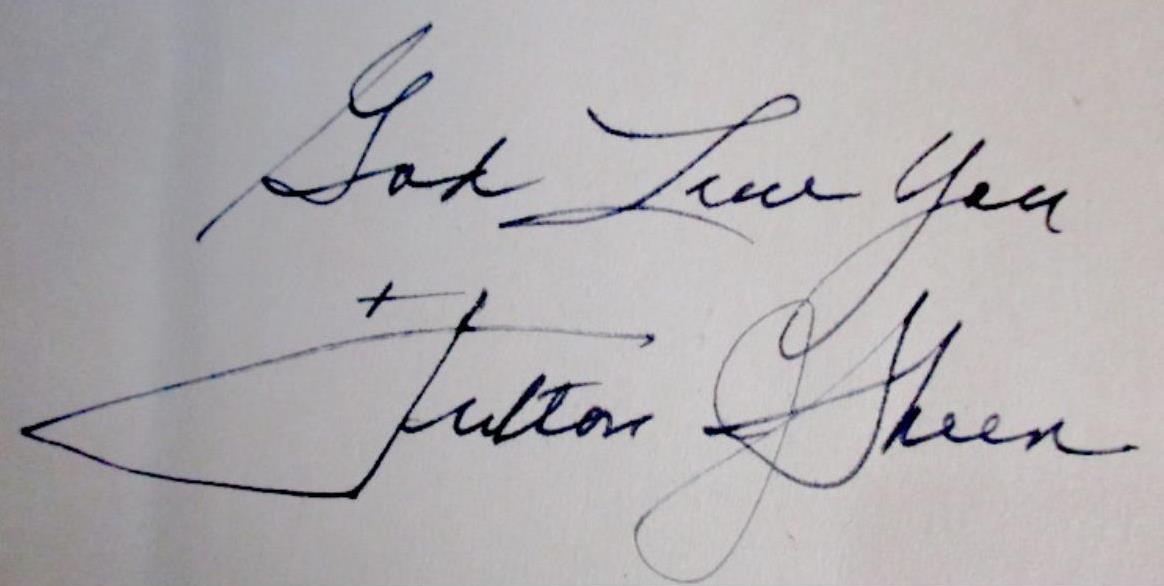 God Love You
+ Fulton J Sheen